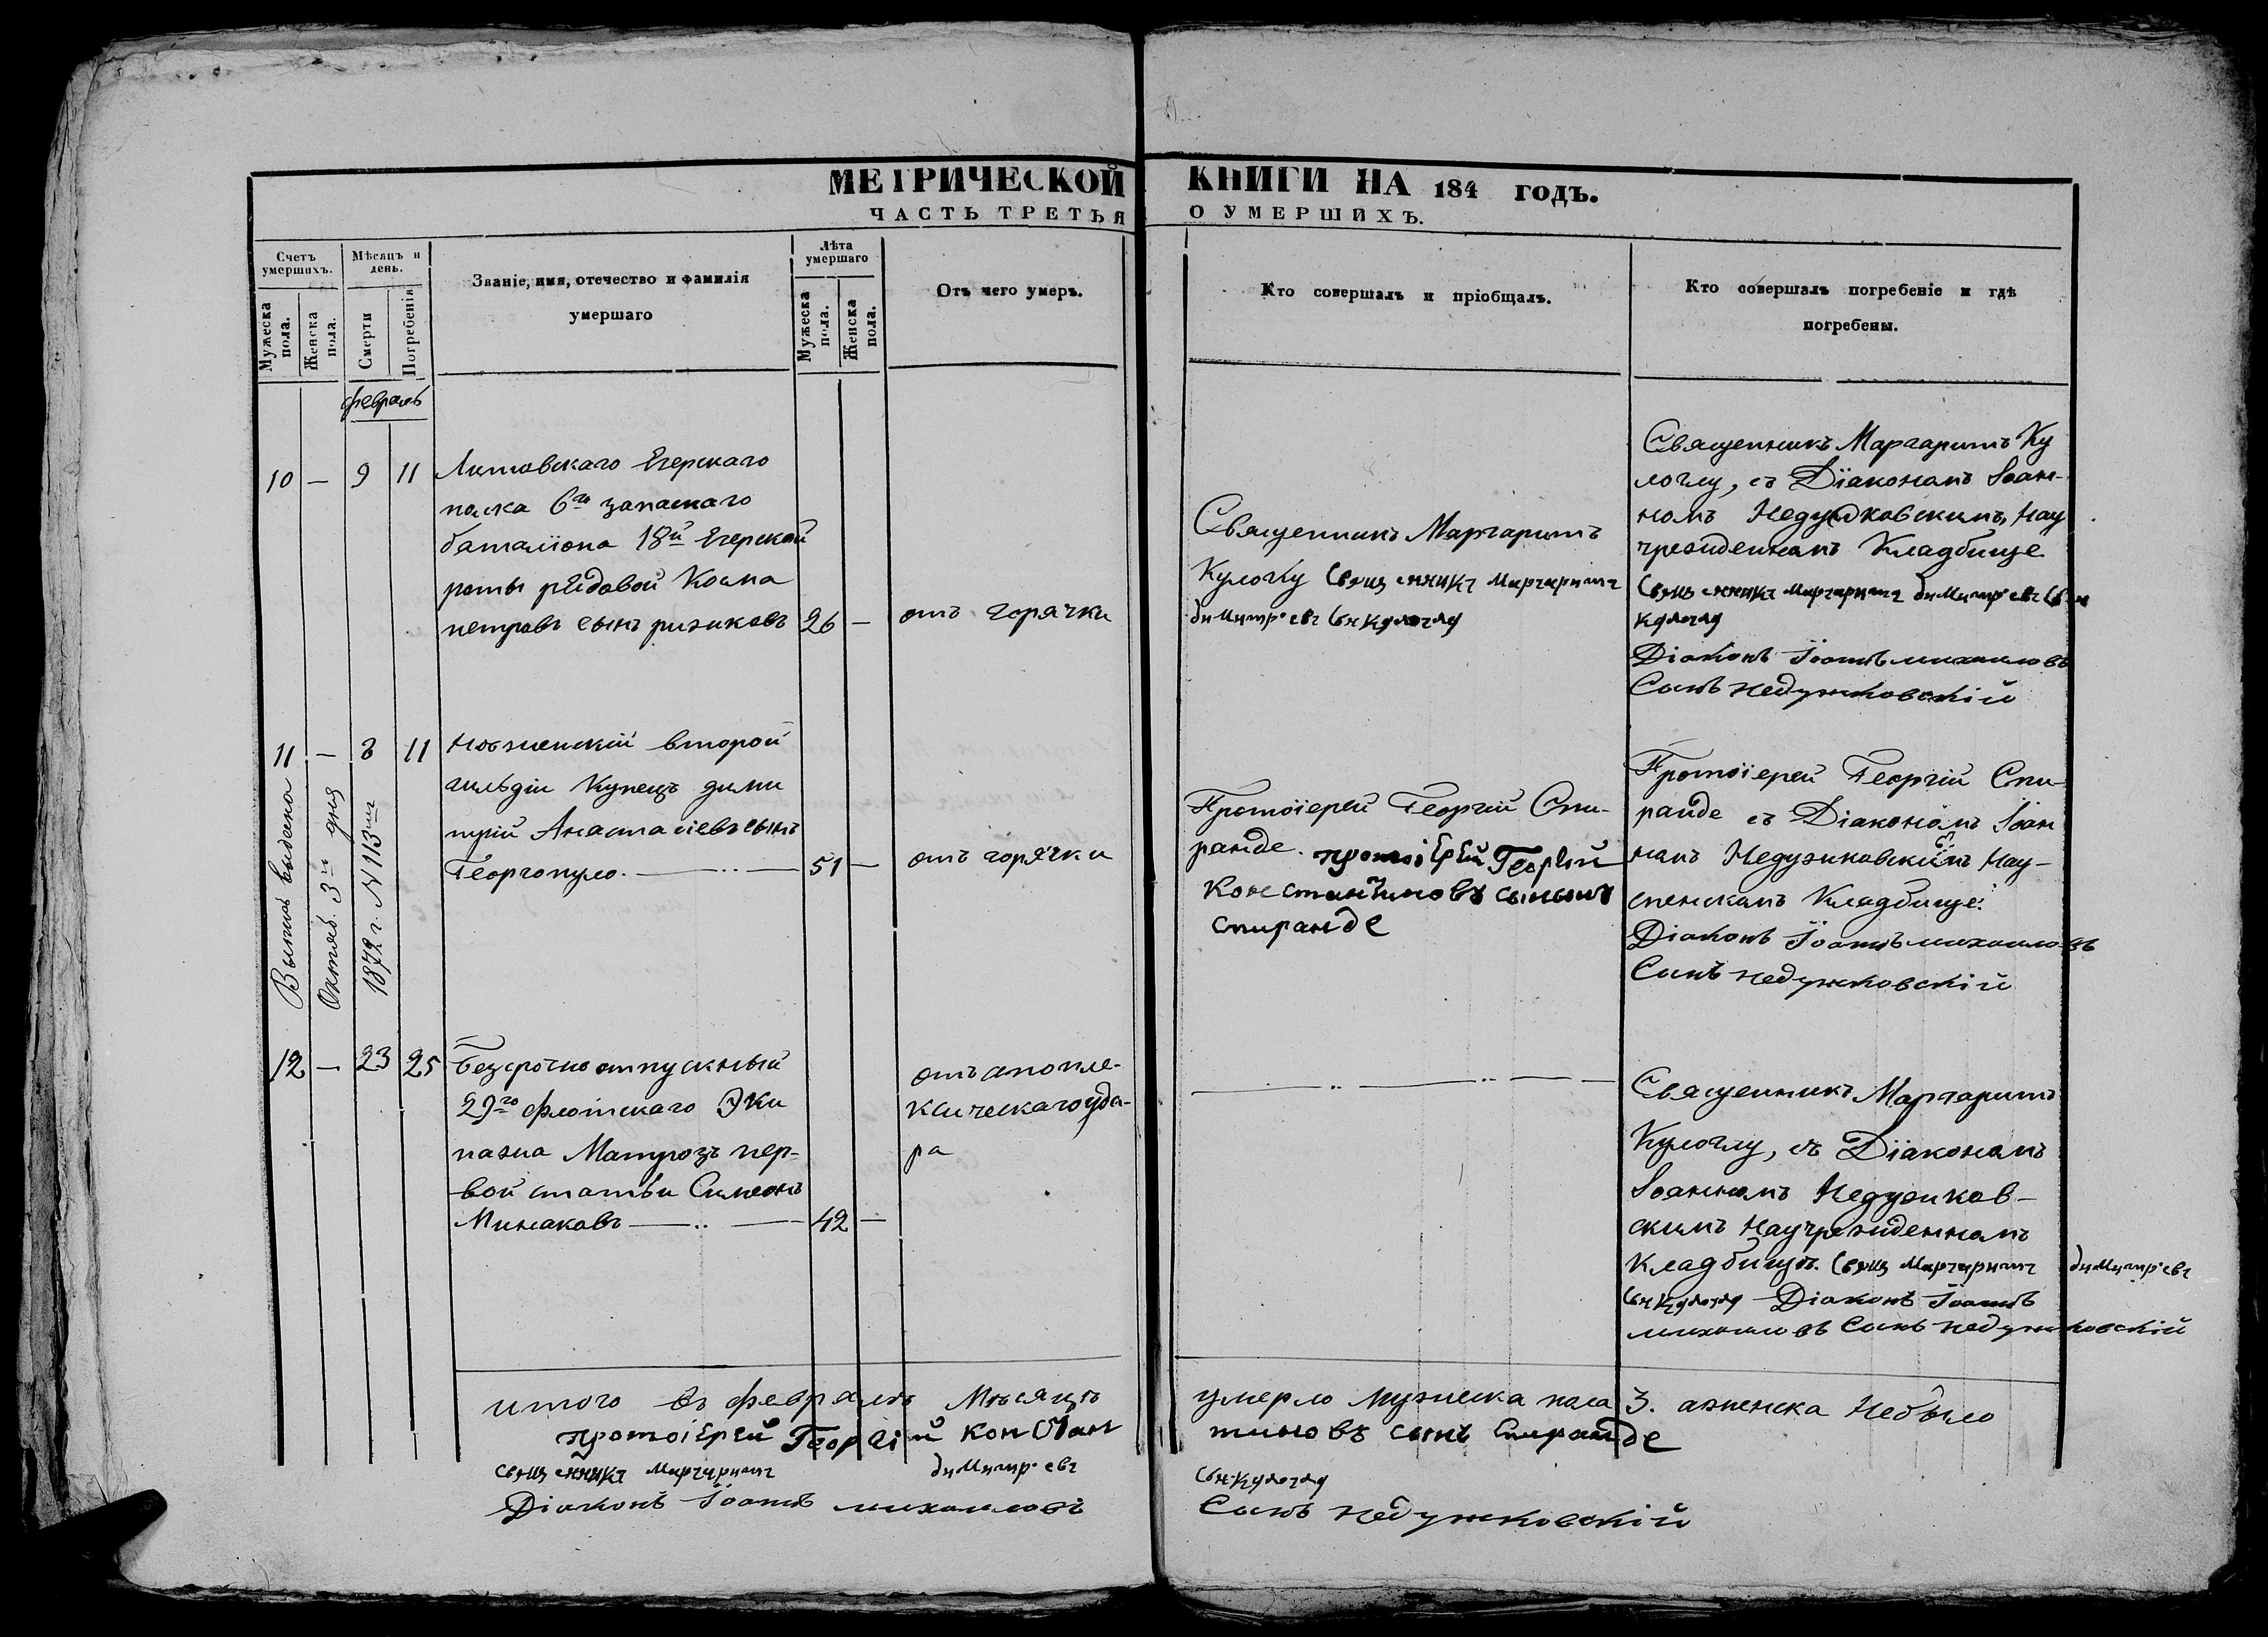 МЕТРИЧЕСКОЙ КНИГИ НА 184 ГОДЪ.
ЧАСТЬ ТРЕТЬЯ О УМЕРШИХЪ.
Счетъ умершихъ.
Мужеска пола.
Женска пола.
Мѣсяцъ и день.
Смерти
Погребенія
Званіе, имя, отечество и фамилія
умершаго
Лѣта умершаго
Мужеска пола.
Женска пола.
Отъ чего умеръ.
Кто совершалъ и пріобщалъ.
Кто совершалъ погребеніе и гдѣ
погребены.
февраль
10 — 9 11 Литовскаго Егерскаго
полка 6го запаснаго
баталіона 18й Егерской
роты рядовой Косма
петровъ сынъ рижковъ 26 — отъ горячки
Священникъ Маргаритъ
Кулоглу Священникъ Маргаритъ
димитріевъ сын Кулоглу
Священникъ Маргаритъ Ку
логлу, съ Діакономъ Іоан-
номъ Недужковскимъ, на
Кладбище
Священникъ Маргаритъ димитріевъ сын
Кулоглу
Діаконъ Іоаннъ михаиловъ
Сынъ недужковскій
11 — 8 11 Нѣжинскій второй
гильдіи Купецъ дими
трій Анастасіевъ сынъ
Георгопуло. 51 — отъ горячки
Выпись выдана
Октяб. 3го дня
1872 г. N 113
Протоіерей Георгій Спи-
ранде. протоіерей Георгій
Константиновъ сынъ
спиранде
Протоіерей Георгій Спи-
ранде съ Діакономъ Іоан
номъ Недужковскимъ на у-
спенскомъ Кладбище.
Діаконъ Іоаннъ михаиловъ
Сынъ недужковскій
12 — 23 25 Безсрочно отпускный
29го флотскаго Эки
пажа Матрозъ пер-
вой статьи Симеонъ
Минаковъ 42 —
отъ апопле-
ксическаго уда-
ра
Священникъ Маргаритъ
Кулоглу, съ Діакономъ
Іоанномъ Недужков-
скимъ на учрежденномъ
кладбищѣ. Свящ Маргаритъ димитріевъ
сын Кулоглу Діаконъ Іоаннъ
михаиловъ Сынъ недужковскій
итого въ февралѣ Мѣсяцѣ умерло мужеска пола 3. а женска небыло
протоіерей Георгій Константиновъ сынъ Спиранде
священникъ Маргаритъ димитріевъ сын Кулоглу
Діаконъ Іоаннъ михаиловъ Сынъ недужковскій